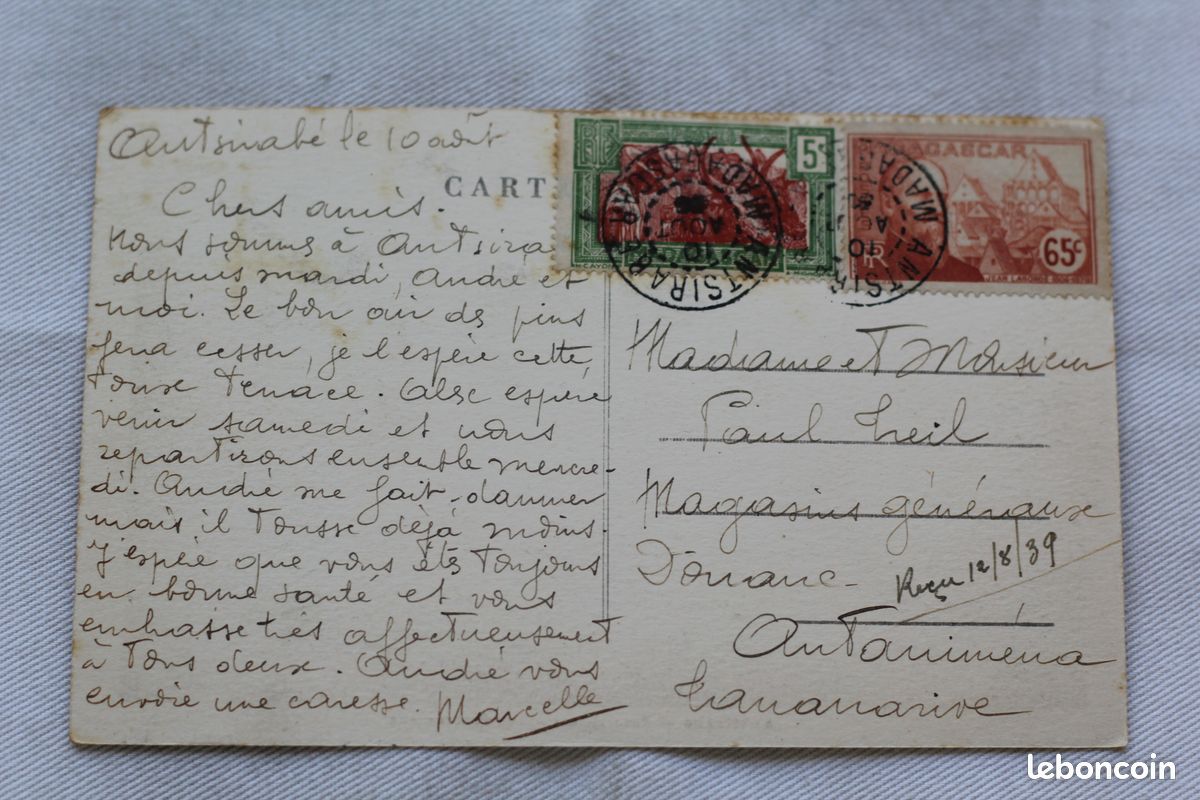 Antsirabé le 10 août
CART
Chers amis.
Nous sommes à Antsira
depuis mardi, André et
moi. Le bon air des pins
fera cesser, je l'espère cette
toux tenace. Alec espère
venir samedi et nous
repartirons ensemble mercre-
di. André me fait damner
mais il tousse déjà moins.
J'espère que vous êtes toujours
en bonne santé et vous
embrasse très affectueusement
à tous deux. André vous
envoie une caresse. Marcelle
RF
5
MADAGASCAR
65c
RF
JEAN LABORDE
ANTSIRABE
10 AOUT
MADAGASCAR
ANTSIR
10
AO
MADAGASCAR
Madame et Monsieur
Paul
Magasins généraux
Douane
Reçu 12/8/39
Antanimena
Tananarive
leboncoin